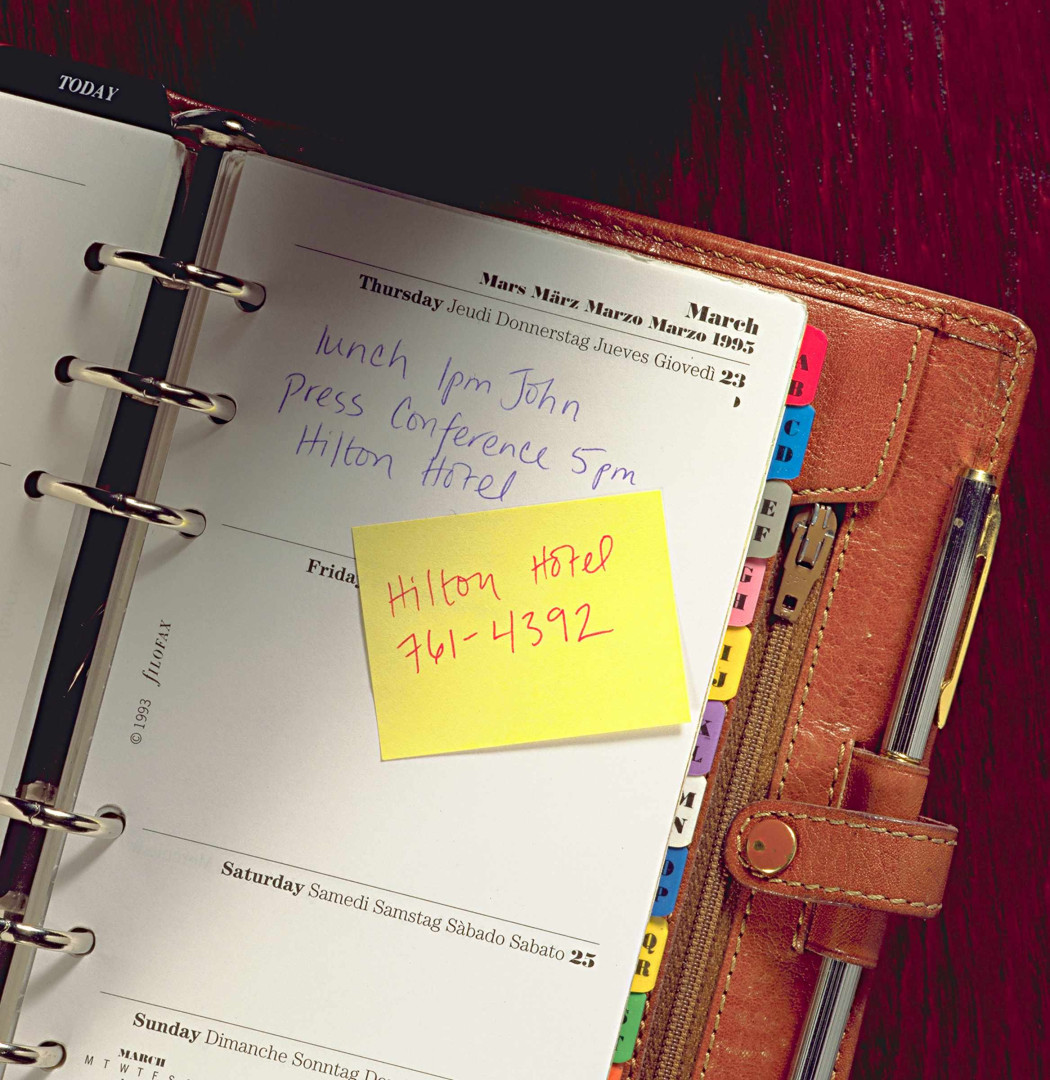 TODAY
March
Mars März Marzo Marzo 1995
Thursday Jeudi Donnerstag Jueves Giovedì 23
lunch 1pm John
Press Conference 5pm
Hilton Hotel
Friday
Hilton Hotel
761-4392
© 1993 fILOFAX
Saturday Samedi Samstag Sàbado Sabato 25
Sunday Dimanche Sonntag
MARCH
M T W T F S
A B
C D
E F
G H
I J
K L
M N
O P
Q R